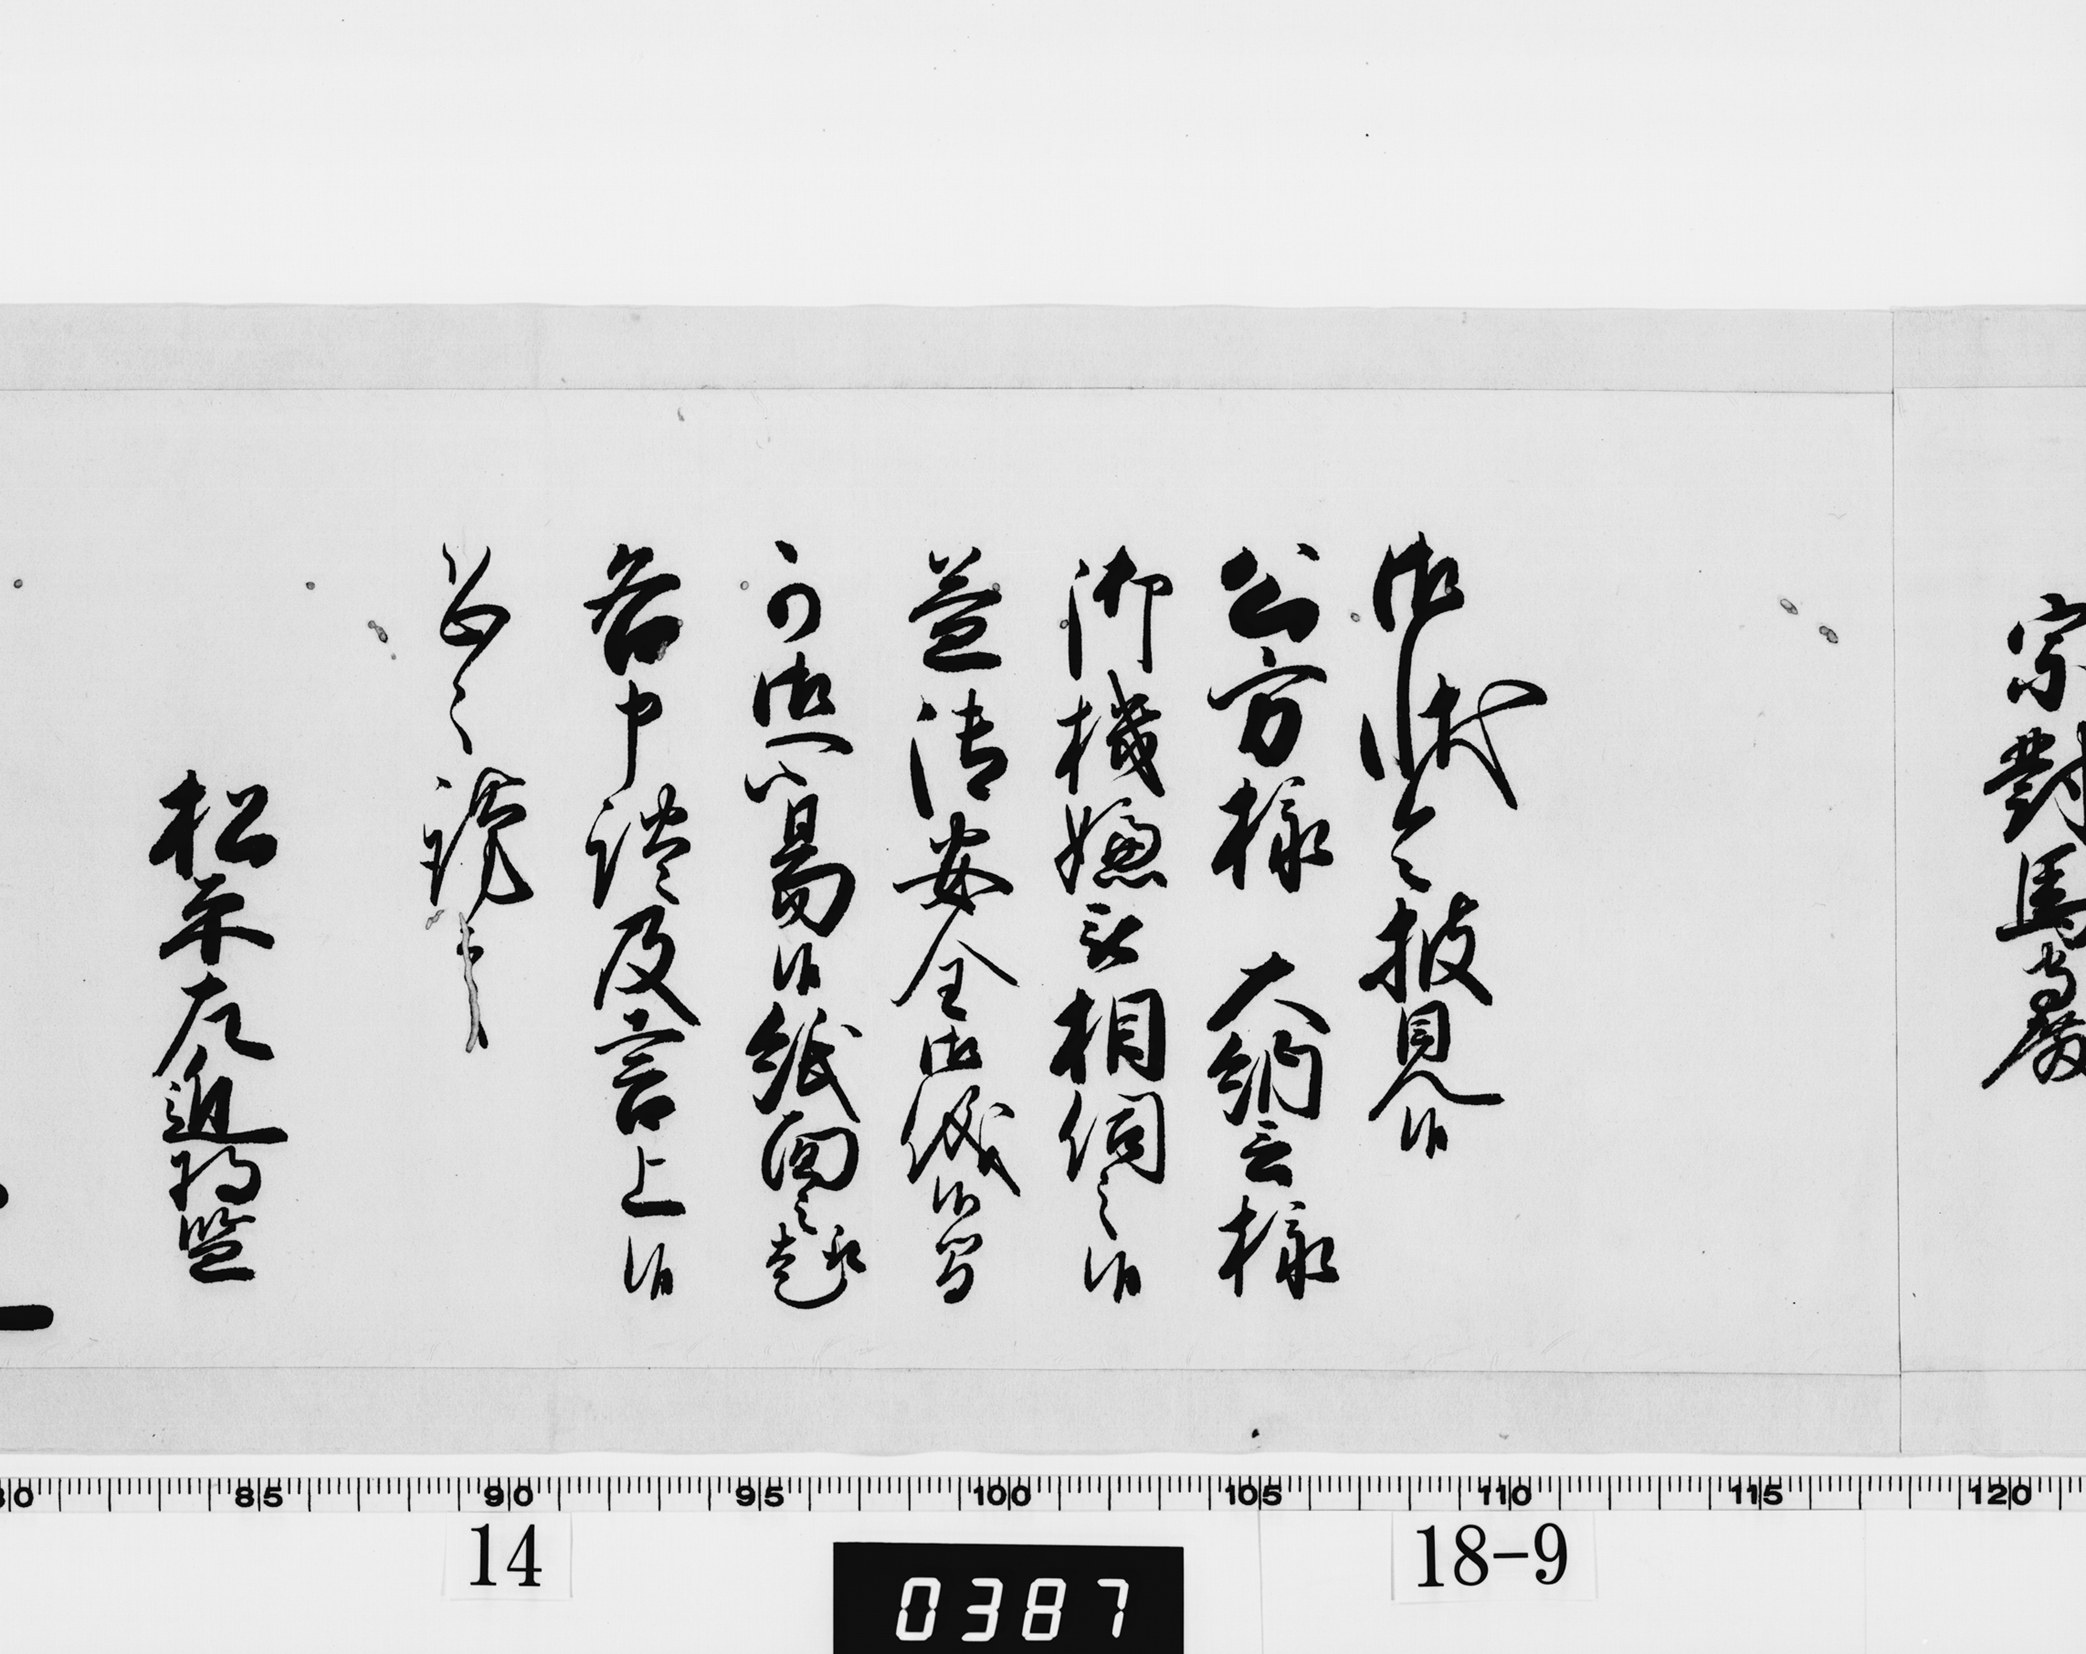 宗對馬守殿
御状令披見候
公方様　大納言様
御機嫌被相伺之候
益御安全御儀候間
可御心易候紙面之趣
各申談及言上候
恐々謹言
松平左近将監
80 85 90 95 100 105 110 115 120
14
18-9
0387